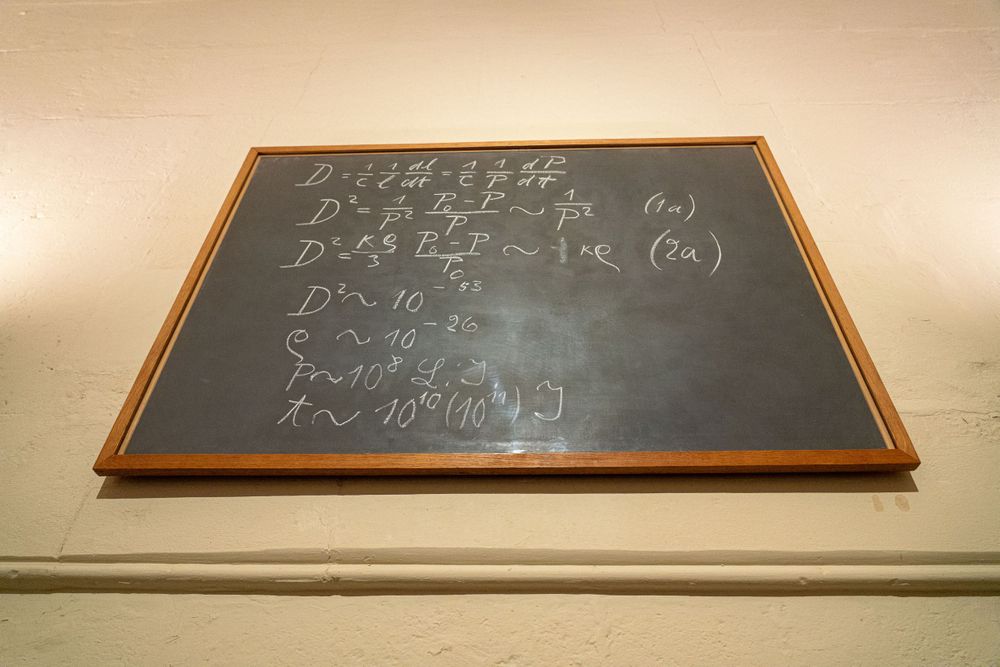 D = 1/c 1/l dl/dt = 1/c 1/P dP/dt
D² = 1/P² P₀-P/P ~ 1/P² (1a)
D² = κϱ/3 P₀-P/P₀ ~ κϱ (2a)
D² ~ 10⁻⁵³
ϱ ~ 10⁻²⁶
P ~ 10⁸ L. J
t ~ 10¹⁰ (10¹¹) J